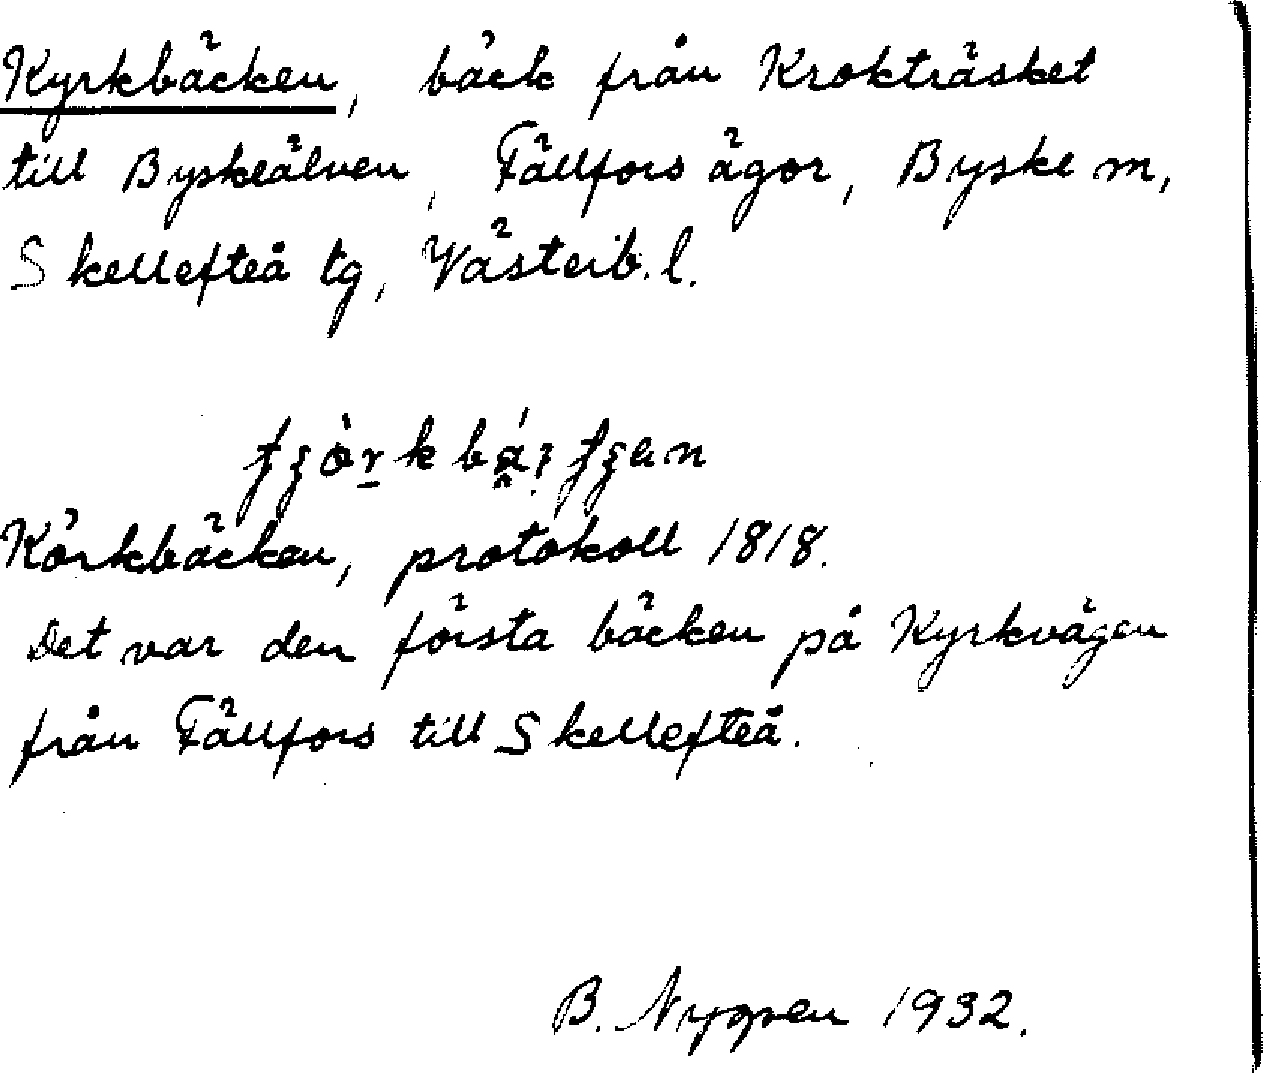 Kyrkbäcken, bäck från Krokträsket
till Byskeälven, Fällfors ägor, Byske m,
Skellefteå tg, Västerb. l.
Körkbäcken, protokoll 1818.
Det var den första bäcken på Kyrkvägen
från Fällfors till Skellefteå.
B. Nygren 1932.